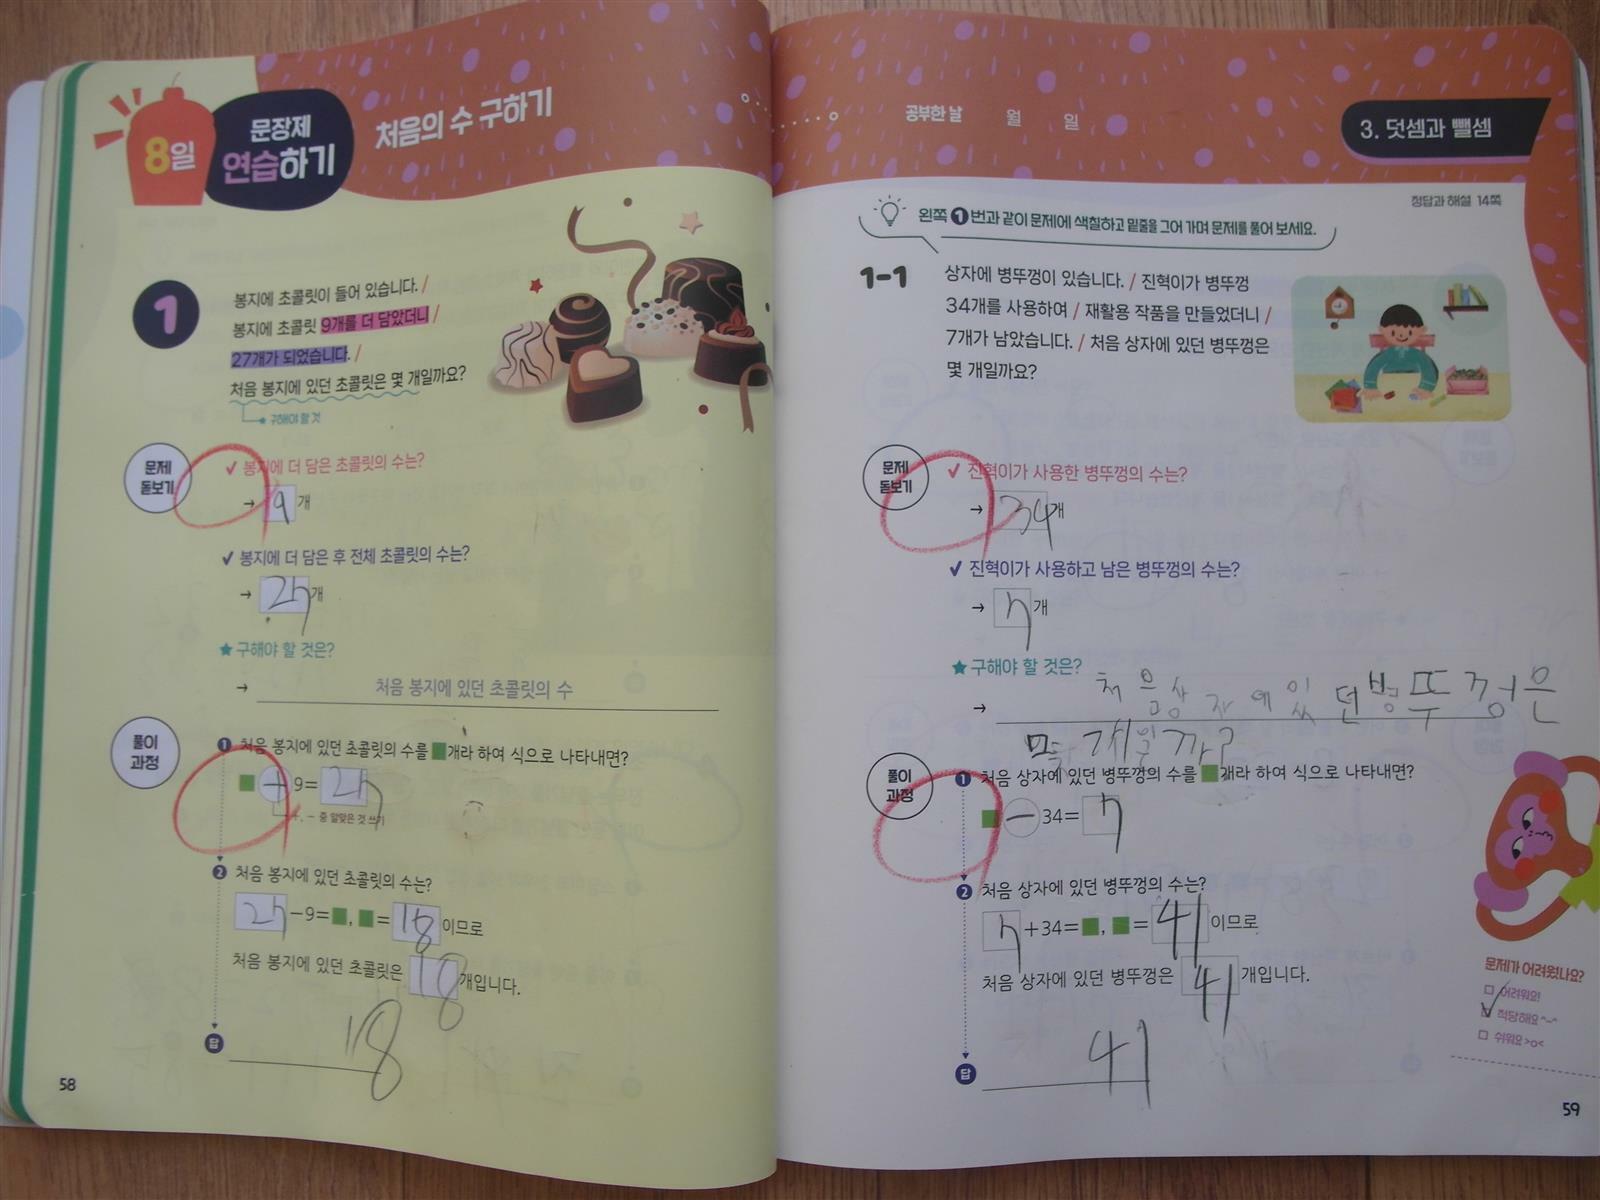 8일
문장제
연습하기
처음의 수 구하기
1
봉지에 초콜릿이 들어 있습니다. /
봉지에 초콜릿 9개를 더 담았더니 /
27개가 되었습니다. /
처음 봉지에 있던 초콜릿은 몇 개일까요?
★ 구해야 할 것
문제
돋보기
✓ 봉지에 더 담은 초콜릿의 수는?
→ 9개
✓ 봉지에 더 담은 후 전체 초콜릿의 수는?
→ 27개
★ 구해야 할 것은?
→ 처음 봉지에 있던 초콜릿의 수
풀이
과정
1 처음 봉지에 있던 초콜릿의 수를 ■개라 하여 식으로 나타내면?
■ + 9 = 27
+, − 중 알맞은 것 쓰기
2 처음 봉지에 있던 초콜릿의 수는?
27 − 9 = ■, ■ = 18 이므로
처음 봉지에 있던 초콜릿은 18 개입니다.
답 18
58
공부한 날 월 일
3. 덧셈과 뺄셈
정답과 해설 14쪽
왼쪽 1 번과 같이 문제에 색칠하고 밑줄을 그어 가며 문제를 풀어 보세요.
1-1
상자에 병뚜껑이 있습니다. / 진혁이가 병뚜껑
34개를 사용하여 / 재활용 작품을 만들었더니 /
7개가 남았습니다. / 처음 상자에 있던 병뚜껑은
몇 개일까요?
문제
돋보기
✓ 진혁이가 사용한 병뚜껑의 수는?
→ 34개
✓ 진혁이가 사용하고 남은 병뚜껑의 수는?
→ 7개
★ 구해야 할 것은?
→ 처음상자에있던병뚜껑은
몇개일까?
풀이
과정
1 처음 상자에 있던 병뚜껑의 수를 ■개라 하여 식으로 나타내면?
■ − 34 = 7
2 처음 상자에 있던 병뚜껑의 수는?
7 + 34 = ■, ■ = 41 이므로
처음 상자에 있던 병뚜껑은 41 개입니다.
답 41
문제가 어려웠나요?
□ 어려워요!
☑ 적당해요 ^-^
□ 쉬워요 >o<
59